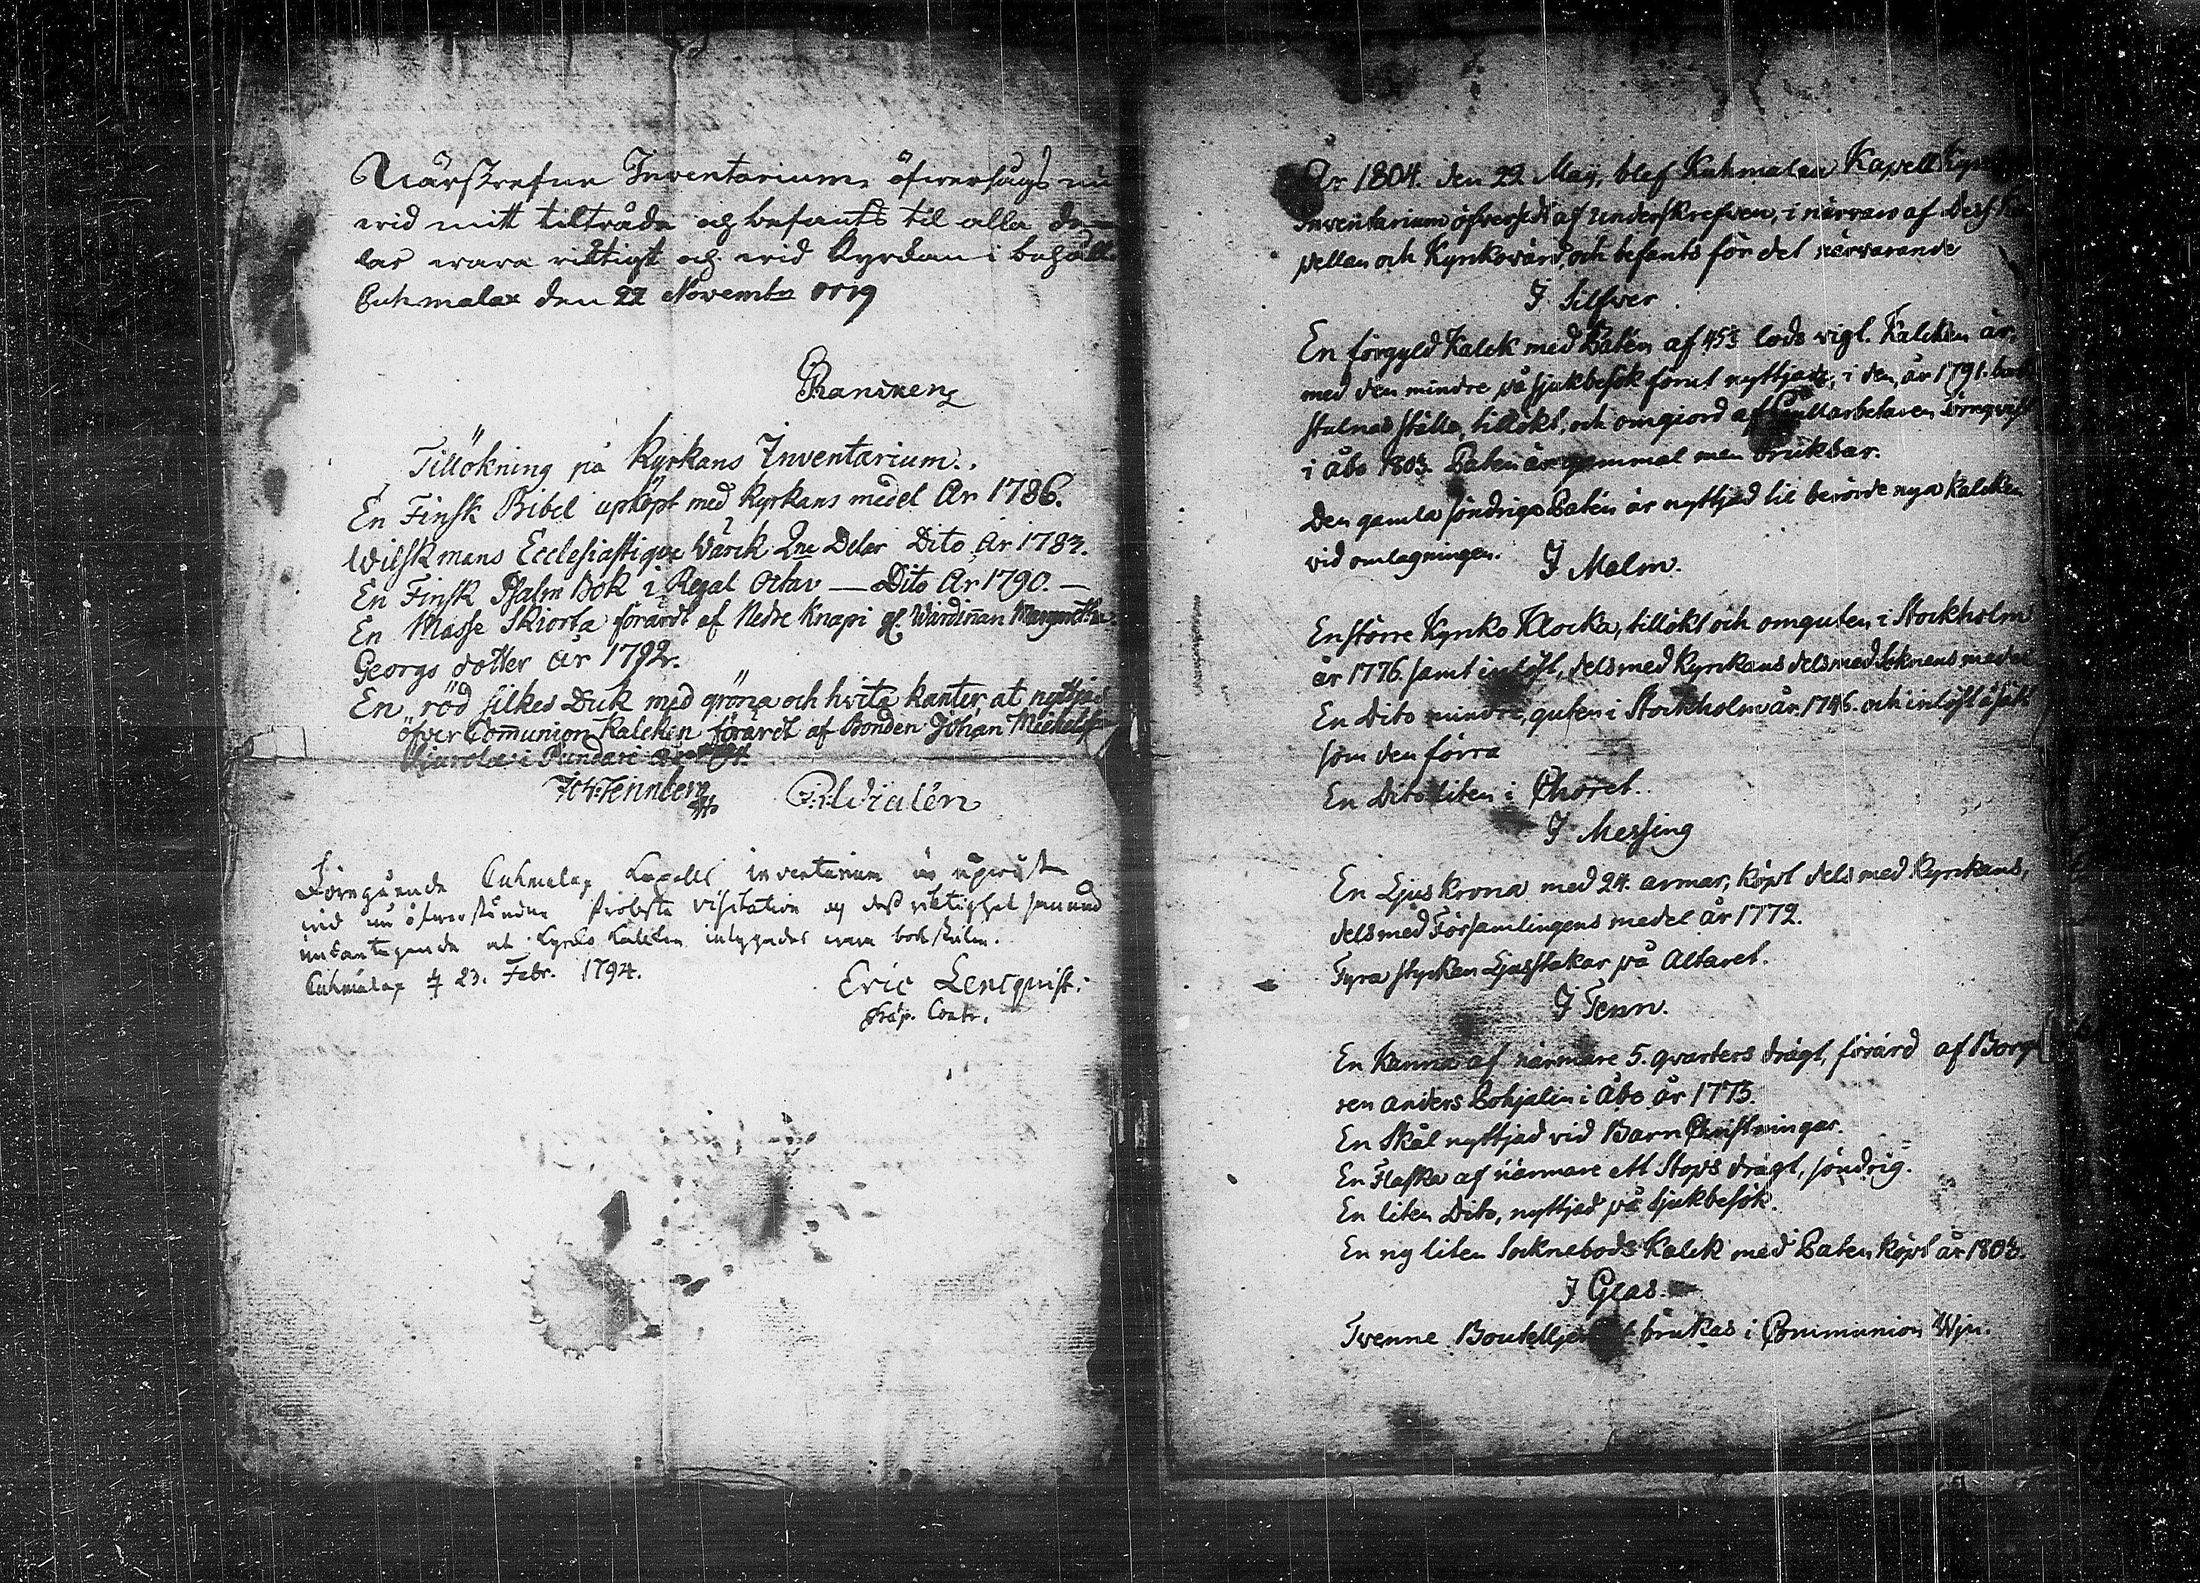 Inventarium öfwersågs nu
wid mitt tilträde och befants til alla de-
lar wara richtigt och wid Kyrckan i behåll.
Cuhmalax den 22 Novemb:
Tillökning på Kyrkans Inventarium.
En Finsk Bibel upköpt med Kyrkans medel År 1786.
Wilskmans Ecclesiastique Wärck 2ne Delar Dito År 1783.
En Finsk Psalm Bok i Regal Octav — Dito År 1790. —
En Masse Skiorta förärdt af Nedre Knapi gl. Wärdinnan
Georgs dotter år 1792.
En röd silkes Duk med gröna och hvita kanter at nyttjas
öfver Communion Kalcken förärdt af Bonden Johan Michelss
i
Föregående Cuhmalax Capells inventarium är upwist
wid nu öfwerståndne Probsta visitation och dess riktighet
undantagande at Kyrko Kalcken intygades wara bortstulen.
Cuhmalax d 23. Febr. 1794.
Eric Lencquist.
Præp. Cont.
År 1804. den 22 Maij, blef Kuhmalax Kapells
Inventarium öfversedt af underskrefven, i närvaro af
pellan och Kyrkovärd, och befants för det närvarande
I Silfver
En förgyld Kalck med Patén af 45¾ lods vigt. Kalcken är,
med den mindre på sjukbesök förut nyttjade, i den år 1791. bort
stulnas ställe, tillökt, och omgiord af Gullarbetaren
i Åbo 1803. Paten är gammal men brukbar.
Den gamla söndriga Patén är nyttjad til berörde nya Kalcken
vid omlagningen.
I Malm.
En större Kyrko Klocka, tillökt och omguten i Stockholm
år 1776. samt inlöst, dels med Kyrkans dels med Soknens medel
En Dito mindre, guten i Stockholm år 1746. och inlöst
som den förra
En Dito liten i Choret.
I Messing
En Ljuskrona med 24. armar, köpt dels med Kyrkans,
dels med Församlingens medel år 1772.
Fyra stycken Ljusstakar på Altaret.
I Tenn.
En Kanna af närmare 5. qvarters drägt, förärd af Borga
ren Anders Pohjalin i Åbo år 1773.
En Skål nyttjad vid Barn Christningar.
En Flaska af närmare ett Stops drägt, söndrig.
En liten Dito, nyttjad på Sjukbesök.
En ny liten Socknebods Kalck med Paten köpt år 1803.
I Glas.
Tvenne brukas i Communion Wijn.